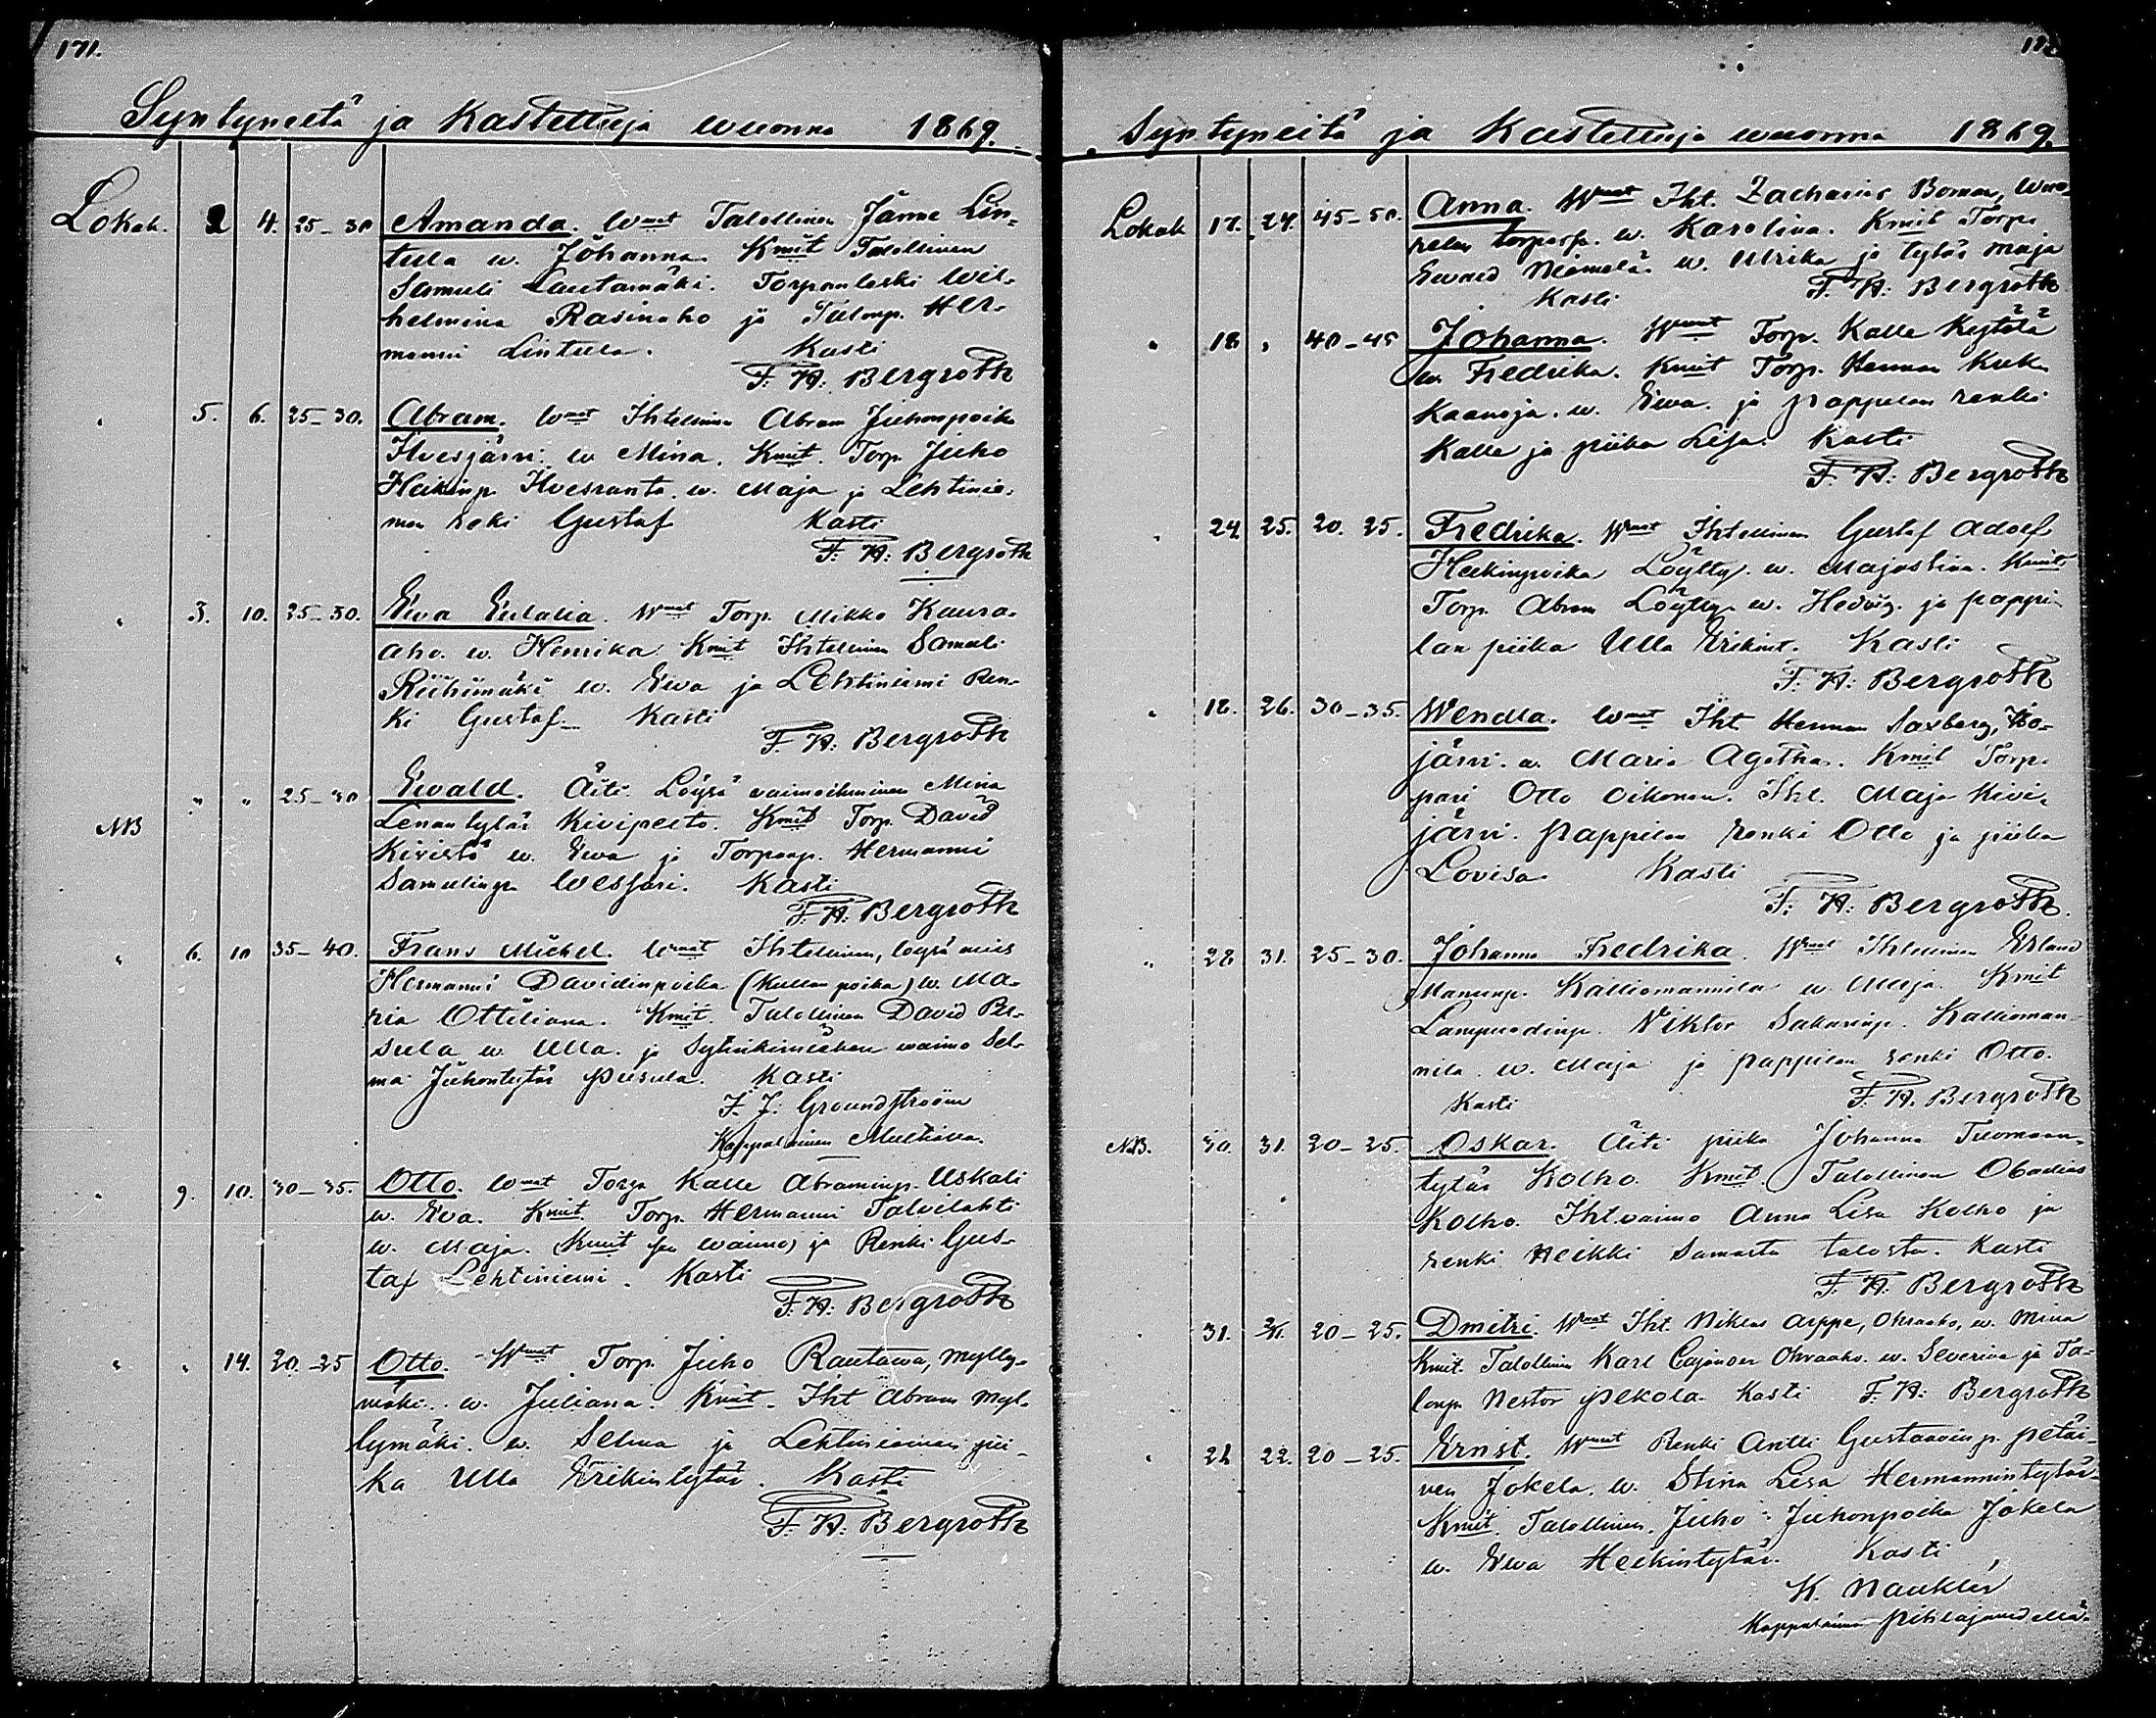 171.
Syntyneitä ja Kastettuja wuonna 1869.
Lokak. 2 4. 25-30 Amanda. Wmat Talollinen Janne Lin-
tula w. Johanna. Kmit Talollinen
Samuli Lautamäki. Torpanleski Wil-
helmina Rasinaho ja Talonp. Her-
manni Lintula. Kasti
F. A: Bergroth
" 5. 6. 25-30. Abram. Wmat Ihtellinen Abram Juhonpoika
Ilvesjärvi w Mina. Kmit. Torp Juho
Heikinp. Ilvesranta. w. Maja ja Lehtinie-
men reki Gustaf Kasti
F. A: Bergroth
" 3. 10. 25-30. Ewa Eulalia. Wmat Torp. Mikko Kaura-
aho. w. Henrika Kmit Ihtellinen Samuli
Riihimäki w. Ewa ja Lehtiniemi Ren-
ki Gustaf. Kasti
F. A: Bergroth
" " 25-30 Ewald. Äiti. Löysä vaimoihminen Mina
NB Lenan tytär Kivipelto. Kmit Torp. David
Kivistö w. Ewa ja Torpanp. Hermanni
Samulinp. Wessari. Kasti
F. A: Bergroth
" 6. 10 35-40. Frans Michel. Wmat Ihtellinen, löysä mies
Hermanni Davidinpoika (Kullan poika) w. Ma-
ria Ottiliana. Kmit. Talollinen David Pu-
sula w. Ulla. ja Sytinkimiähen waimo Sel-
ma Juhontytär Pusula. Kasti
F. J: Groundström
Kappalainen Multiassa.
" 9. 10. 30-35. Otto. Wmat Torp. Kalle Abraminp. Uskali
w. Eva. Kmit. Torp. Hermanni Talvilahti
w. Maja. (Kmit waimo) ja Renki Gus-
taf Lehtiniemi. Kasti
F. A: Bergroth
" " 14. 20-25 Otto. Wmat. Torp. Juho Rautawa, Mylly-
mäki. w. Juliana. Kmit. Iht Abram Myl-
lymäki. w. Selma ja Lehtiniemen pii-
ka Ulla Erikintytär. Kasti
F. A: Bergroth
Syntyneitä ja Kastettuja wuonna 1869.
Lokak 17. 24. 45-50. Anna. Wmat Iht. Zacharias Boman,
torpasp. w. Karolina. Kmit Torp.
Ewald Niemelä. w. Ulrika ja tytär Maja
Kasti F. A: Bergroth
" 18 " 40-45 Johanna. Wmat Torp. Kalle Kytölä
w. Fredrika. Kmit Torp. Herman Kuk-
kaanoja. w. Ewa. ja pappilan renki
Kalle ja piika Lisa. Kasti
F. A: Bergroth
" 24. 25. 20. 25. Fredrika. Wmat Ihtellinen Gustaf Adolf
Heikinpoika Löytty. w. Majastina. Kmit
Torp. Abram Löytty w. Hedvig. ja pappi-
lan piika Ulla Erikint. Kasti
F. A: Bergroth
" 18. 26. 30-35. Wendla. Wmat Iht Herman Saxberg, Iso-
järvi. w. Maria Agatha. Kmit Torp-
pari Otto Oikonen. Iht. Maja Kivi-
järvi. pappilan renki Otto ja piika
Lovisa. Kasti
F. A: Bergroth.
" 28 31. 25-30. Johanna Fredrika. Wmat Ihtellinen Erland
Mununp. Kalliomannila w. Maja. Kmit
Lampuodinp. Viktor Sakarinp. Kallioman-
nila. w. Maja ja pappilan renki Otto.
Kasti F. A. Bergroth
NB. 30. 31. 20-25. Oskar. Äiti piika Johanna Tuomaan-
tytär Kolho. Kmit Talollinen Obadias
Kolho. Iht.vaimo Anna Lisa Kolho ja
renki Heikki Samasta talosta. Kasti
F. A: Bergroth
" 31. 2/11. 20-25. Dmitri. Wmat Iht. Niklas Arppe, Ohraaho, w. Mina
Kmit. Talollinen Karl Cajander Ohraaho. w. Severina ja Ta-
lonp. Nestor Pekola. Kasti F. A: Bergroth
" 21 22. 20-25. Ernst. Wmat Renki Antti Gustaavinp. Petäi-
ven Jokela. w. Stina Lisa Hermannintytär.
Kmit. Talollinen. Juho Juhonpoika Jokela
w. Ewa Heikintytär. Kasti
K. Nauklér
Kappalainen Pihlajavedellä.